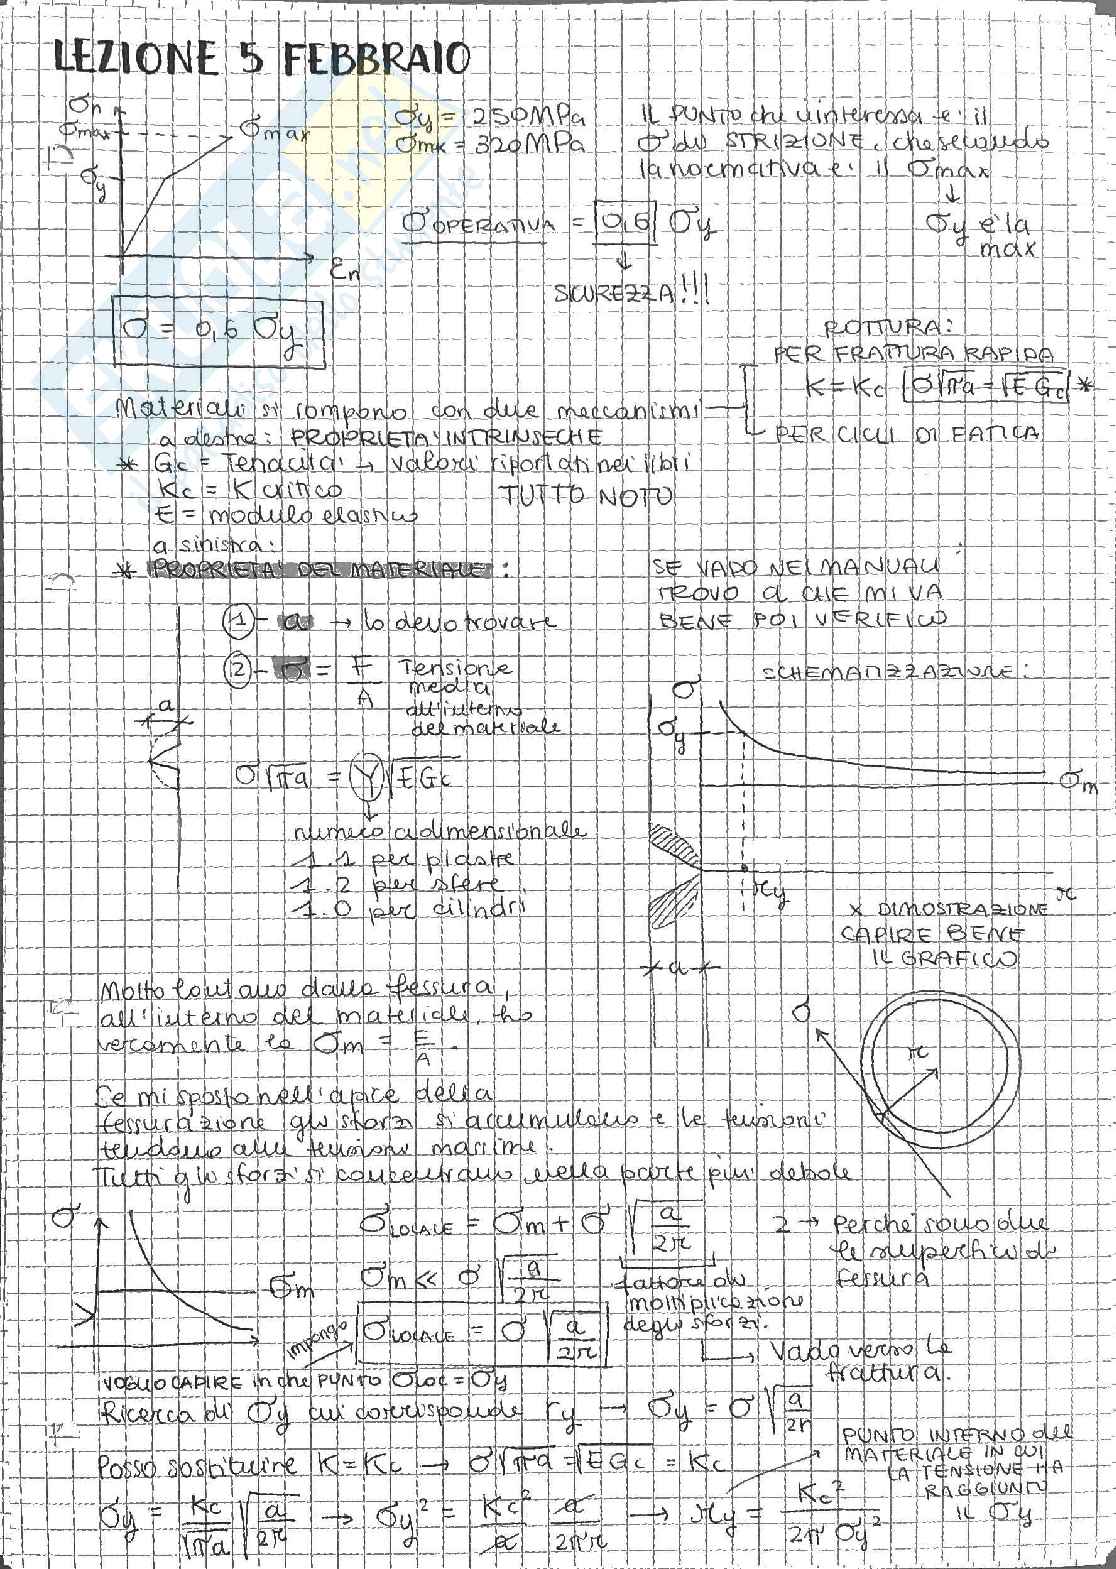 LEZIONE 5 FEBBRAIO
σn
σmax
σmax
σy
εn
σy = 250MPa
σmx = 320MPa
IL PUNTO che ci interessa è: il
σ di STRIZIONE, che secondo
la normativa è: il σmax
↓
σy è la
max
σOPERATIVA = 0,6 σy
↓
SICUREZZA!!!
σ = 0,6 σy
ROTTURA:
PER FRATTURA RAPIDA
K = Kc σ√πa = √EGc *
PER CICLI DI FATICA
Materiali si rompono con due meccanismi
a destra: PROPRIETA' INTRINSECHE
* Gc = Tenacità → valori riportati nei libri
Kc = K critico
TUTTO NOTO
E = modulo elastico
a sinistra:
* PROPRIETA' DEL MATERIALE:
1 - a → lo devo trovare
2 - σ = F/A Tensione
media
all'interno
del materiale
SE VADO NEI MANUALI
TROVO a CHE MI VA
BENE POI VERIFICO
SCHEMATIZZAZIONE:
a
σ√πa = Y√EGc
↓
numero adimensionale
1.1 per piastre
1.2 per sfere
1.0 per cilindri
σ
σy
σm
ry
r
a
X DIMOSTRAZIONE
CAPIRE BENE
IL GRAFICO
Molto lontano dalla fessura,
all'interno del materiale, ho
veramente la σm = F/A.
σ
r
Se mi sposto nell'apice della
fessurazione gli sforzi si accumulano e le tensioni
tendono alla tensione massima.
Tutti gli sforzi si concentrano nella parte più debole
σ
σm
σLOCALE = σm + σ √a/2r
2 → Perché sono due
le superfici di
fessura
σm << σ √a/2r
fattore di
moltiplicazione
degli sforzi.
impongo
σLOCALE = σ √a/2r
Vado verso la
frattura.
VOGLIO CAPIRE in che PUNTO σLOC = σy
Ricerca di σy cui corrisponde ry → σy = σ √a/2r
PUNTO INTERNO del
MATERIALE IN CUI
LA TENSIONE HA
RAGGIUNTO
IL σy
Posso sostituire K = Kc → σ√πa = √EGc = Kc
σy = Kc/√πa √a/2r → σy² = Kc²/a a/2πr → ry = Kc²/2π σy²